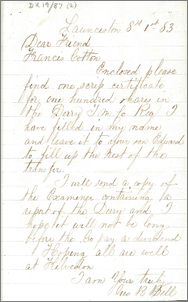 DX19/57 (2)
Launceston 5th 1st 83
Dear Friend
Francis Cotton
Enclosed please
find one scrip certificate
for one hundred shares in
the Derby Tin Co Reg I
have filled in my name
and leave it to your son Edward
to fill up the rest of the
transfer.
I will send a copy of
the Examiner containing a
report of the Derby and I
hope it will not be long
before the Co pay a dividend
Hoping all are well
at Kelvedon
I am Yours truly
B Bell